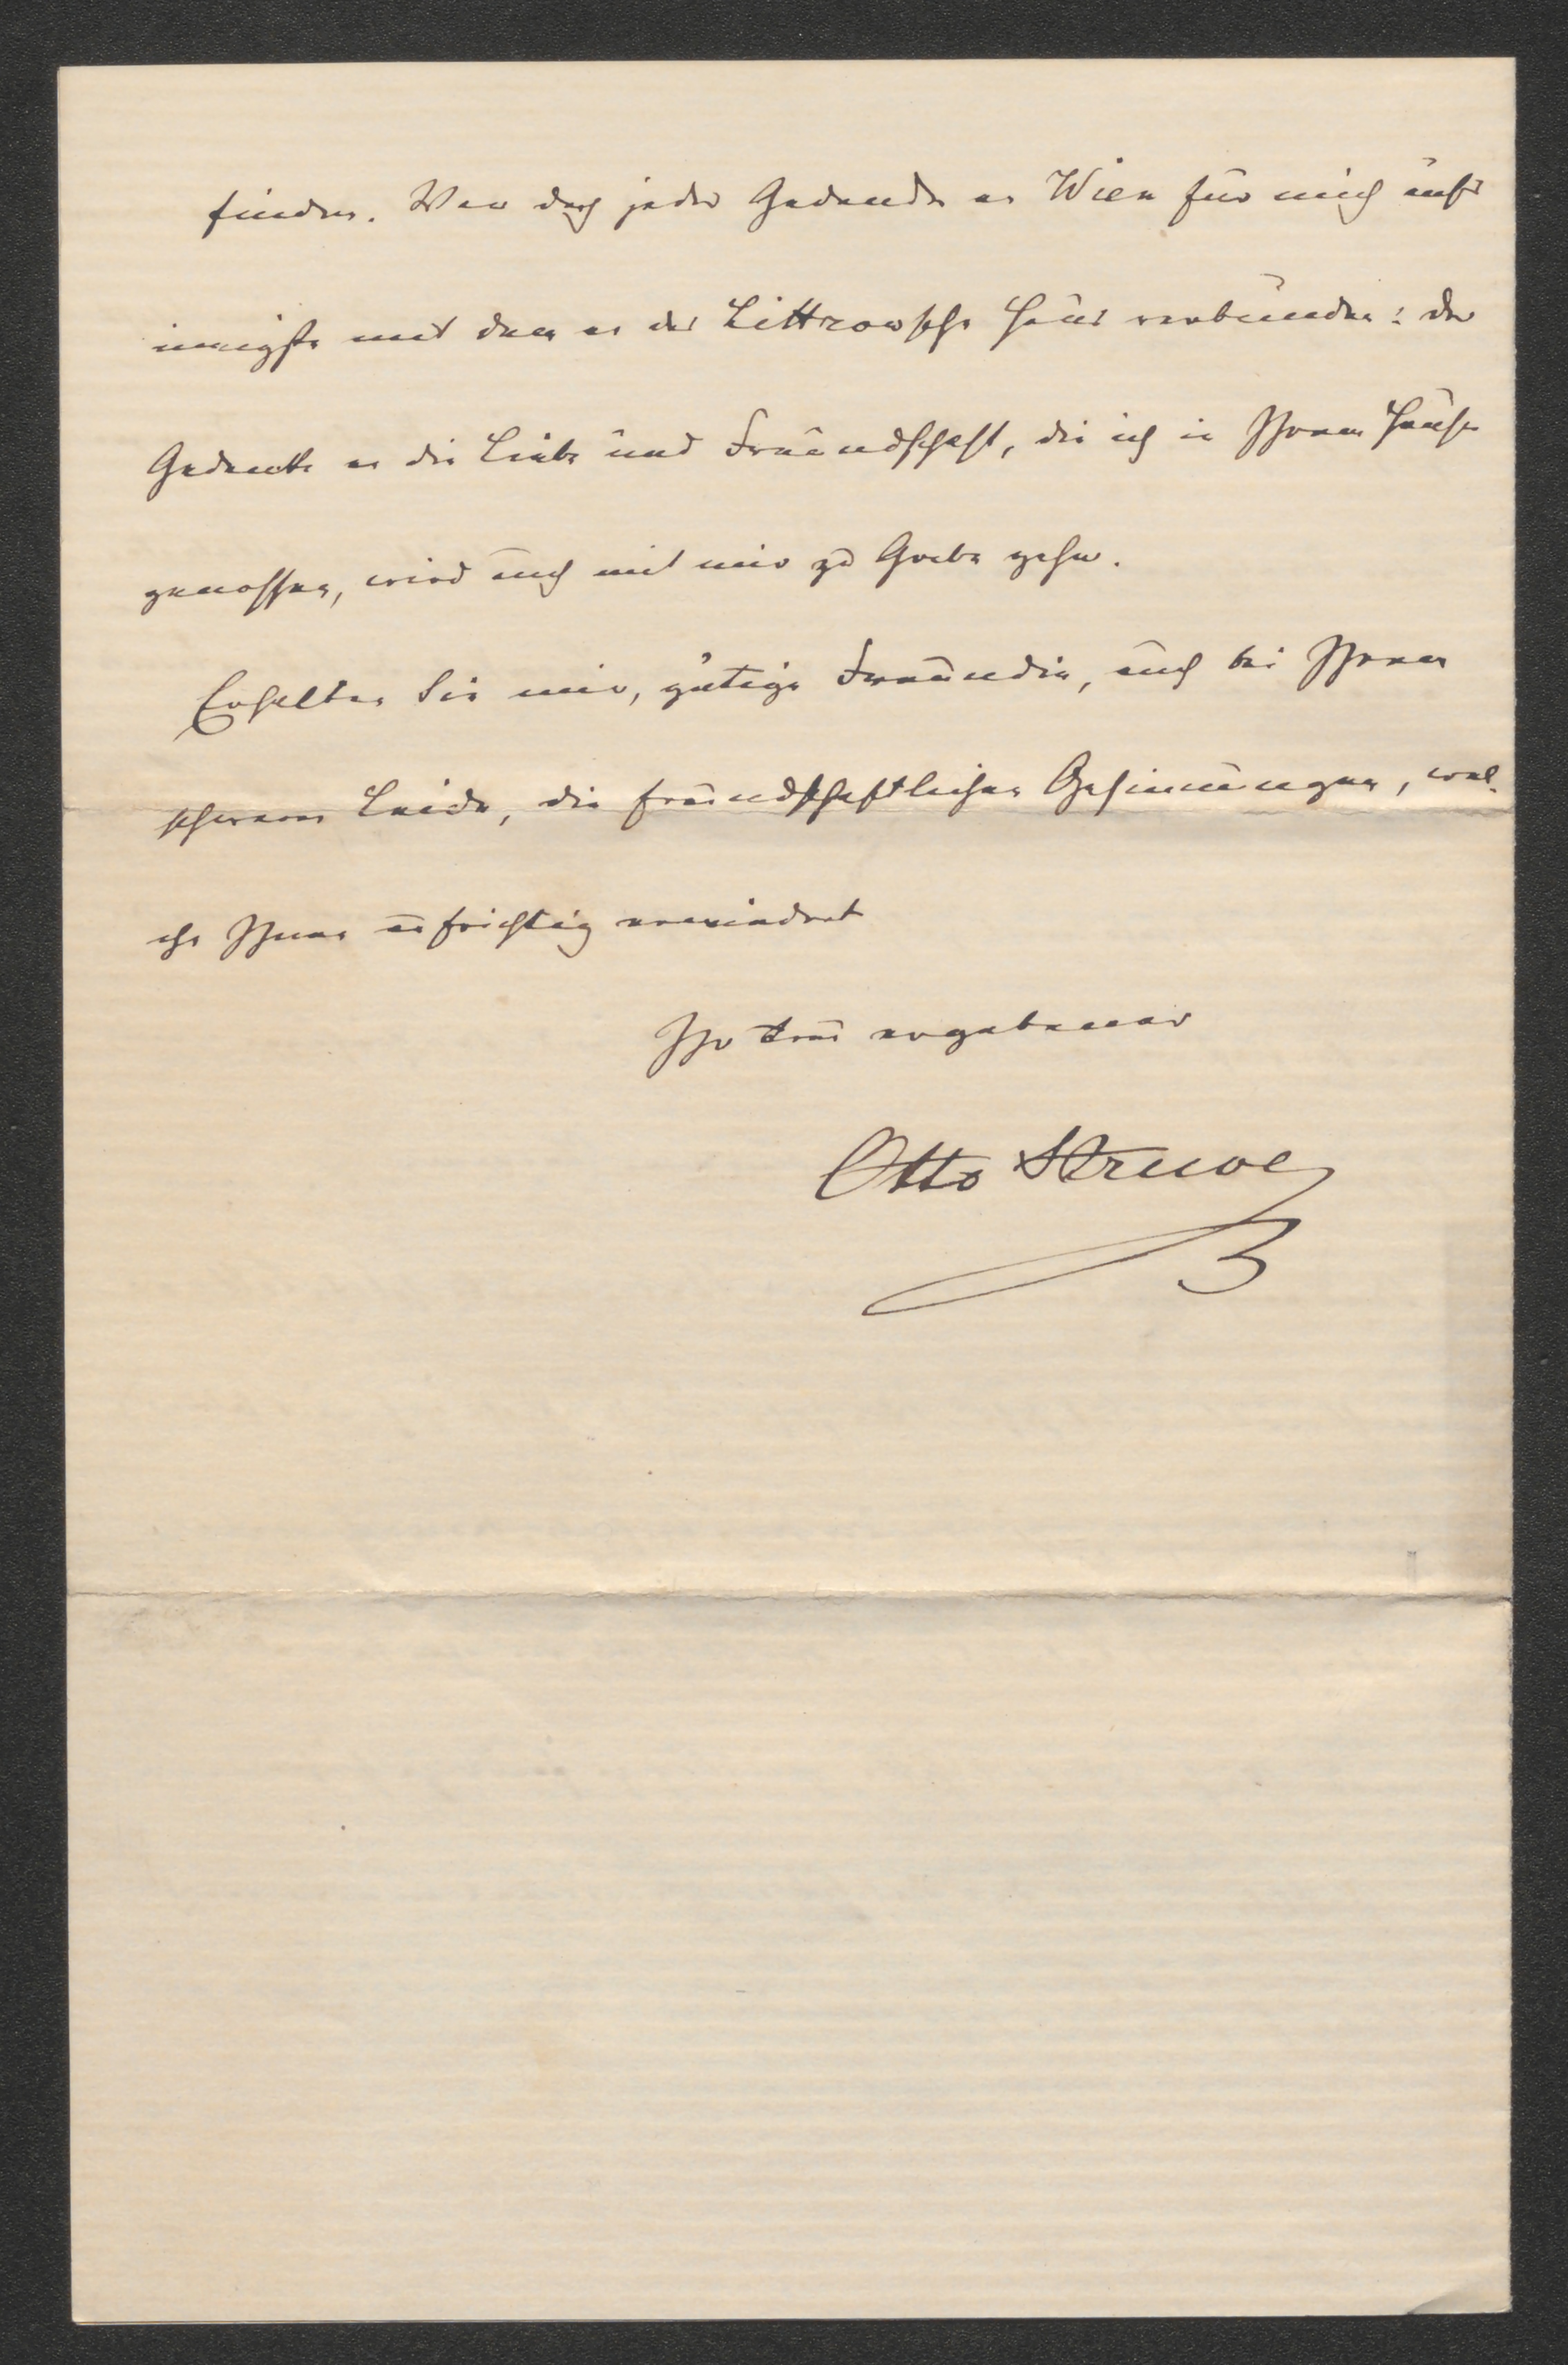 finden. War doch jeder Gedanke an Wien für mich aufs
innigste mit dem an das Littrowsche Haus verbunden: der
Gedanke an die Liebe und Freundschaft, die ich in Ihrem Hause
genossen, wird auch mit mir zu Grabe gehn.
Erhalten Sie mir, gütige Freundin, auch bei Ihrem
schweren Leide, die freundschaftlichen Gesinnungen, wel-
che Ihnen aufrichtig erwiedert
Ihr treu ergebener
Otto Struve